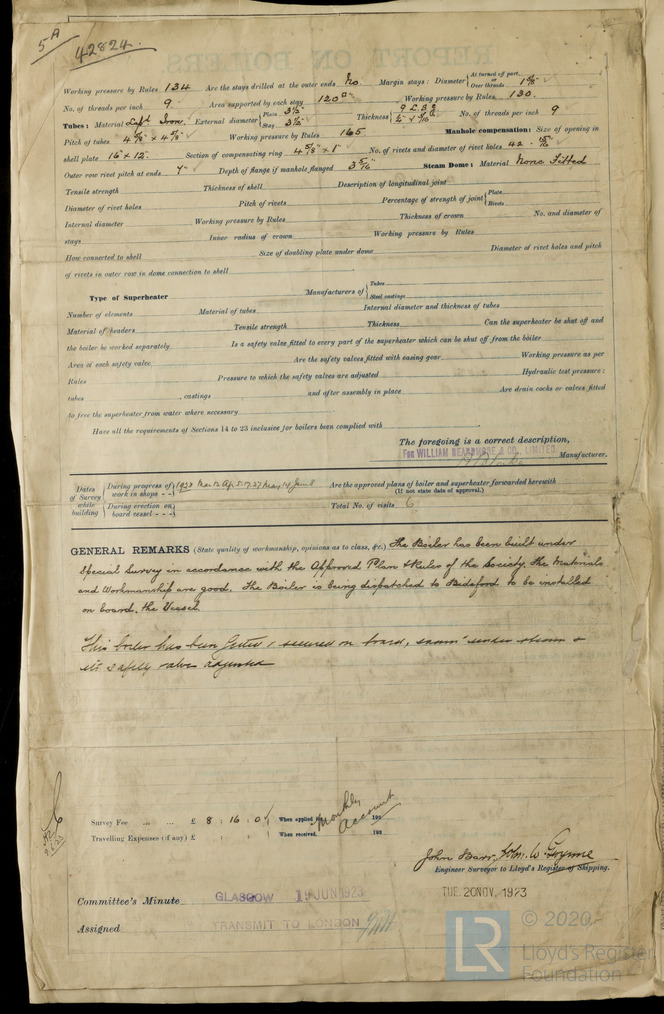 5A
42824.
Working pressure by Rules 134 Are the stays drilled at the outer ends No Margin stays: Diameter { At turned off part, or Over threads 1 5/8"
No. of threads per inch 9 Area supported by each stay 120 Working pressure by Rules 130.
Tubes: Material Lapd Iron External diameter { Plain 3½" Stay 3½" Thickness { No. of threads per inch 9
Pitch of tubes 4 5/8" x 4 5/8" Working pressure by Rules 165 Manhole compensation: Size of opening in
shell plate 16" x 12" Section of compensating ring 4 5/8" x 1" No. of rivets and diameter of rivet holes 42 - 15/16
Outer row rivet pitch at ends 7" Depth of flange if manhole flanged 3 5/16" Steam Dome: Material None Fitted
Tensile strength Thickness of shell Description of longitudinal joint
Diameter of rivet holes Pitch of rivets Percentage of strength of joint { Plate Rivets
Internal diameter Working pressure by Rules Thickness of crown No. and diameter of
stays Inner radius of crown Working pressure by Rules
How connected to shell Size of doubling plate under dome Diameter of rivet holes and pitch
of rivets in outer row in dome connection to shell
Type of Superheater Manufacturers of { Tubes Steel castings
Number of elements Material of tubes Internal diameter and thickness of tubes
Material of headers Tensile strength Thickness Can the superheater be shut off and
the boiler be worked separately Is a safety valve fitted to every part of the superheater which can be shut off from the boiler
Area of each safety valve Are the safety valves fitted with easing gear Working pressure as per
Rules Pressure to which the safety valves are adjusted Hydraulic test pressure:
tubes , castings and after assembly in place Are drain cocks or valves fitted
to free the superheater from water where necessary
Have all the requirements of Sections 14 to 23 inclusive for boilers been complied with
The foregoing is a correct description,
For WILLIAM BEARDMORE & CO., LIMITED. Manufacturer.
Dates of Survey while building { During progress of work in shops - - } 1923 Mar 12 Apr 5.17.27 May 14 June 8 Are the approved plans of boiler and superheater forwarded herewith
(If not state date of approval.)
{ During erection on board vessel - - - } Total No. of visits 6
GENERAL REMARKS (State quality of workmanship, opinions as to class, &c.) The Boiler has been built under
Special Survey in accordance with the Approved Plan & Rules of the Society. The Materials
and Workmanship are good. The Boiler is being dispatched to Bideford to be installed
on board, the Vessel.
This boiler has been fitted & secured on board, under steam &
its safety valve adjusted
Survey Fee ... ... £ 8 : 16 : 0 When applied for, 192
Monthly Account
Travelling Expenses (if any) £ : : When received, 192
John Barr, John W Gwynne
Engineer Surveyor to Lloyd's Register of Shipping.
Committee's Minute GLASGOW 19 JUN 1923
TUE. 20 NOV. 1923
Assigned TRANSMIT TO LONDON
LR
© 2020
Lloyd's Register
Foundation